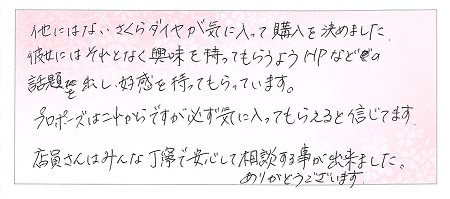 他にはない、さくらダイヤが気に入って購入を決めました。
彼女にはそれとなく興味を持ってもらうようHPなどの
話題を出し、好感を持ってもらっています。
プロポーズはこれからですが必ず気に入ってもらえると信じてます
店員さんはみんな丁寧で安心して相談する事が出来ました。
ありがとうございます